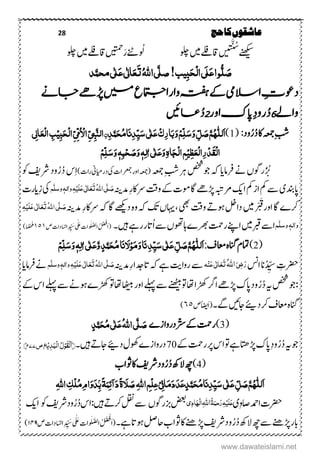 عاشقوں کا حج
28
سیکھنے سنتیں قافلے میں چلو لوٹنے رحمتیں قافلے میں چلو
صَلُّوْا عَلَی الْحَبِیْب! صلَّی اللہُ تَعَالٰی عَلٰی محمَّد
دعوتِ اسلامی کے ہفتہ وار اجتماع میں پڑھے جانے
والے 6 دُرودِ پاک اور 2 دُعائیں
(1) شبِ جمعہ کا دُرُود: اَللّٰھُمَّ صَلِّ وَسَلِّمْ وَبَارِکْ عَلٰی سَیِّدِنَا مُحَمَّدِنِ النَّبِیِّ الْاُمِّیِّ الْحَبِیْبِ الْعَالِی
الْقَدْرِ الْعَظِیْمِ الْجَاہِ وَعَلٰی اٰلِہٖ وَصَحْبِہٖ وَسَلِّمْ
بُزرگوں نے فرمایا کہ جو شخص ہر شبِ جمعہ (جمعہ اور جمعرات کی درمیانی رات) اِس دُرُود شریف کو
پابندی سے کم از کم ایک مرتبہ پڑھے گا موت کے وقت سرکارِ مدینہ صَلَّی اللہُ تَعَالٰی عَلَیْہِ واٰلہٖ وسلَّم کی زیارت
کرے گا اور قبر میں داخل ہوتے وقت بھی، یہاں تک کہ وہ دیکھے گا کہ سرکارِ مدینہ صَلَّی اللہُ تَعَالٰی عَلَیْہِ
واٰلہٖ وسلَّم اسے قبر میں اپنے رحمت بھرے ہاتھوں سے اُتار رہے ہیں۔
(2) تمام گناہ معاف: اَللّٰھُمَّ صَلِّ عَلٰی سَیِّدِنَا وَمَوْلَانَا مُحَمَّدٍ وَّعَلٰی اٰلِہٖ وَسَلِّمْ
حضرتِ سیِّدُنا انس رَضِیَ اللہُ تَعَالٰی عَنْہُ سے روایت ہے کہ تاجدارِ مدینہ صَلَّی اللہُ تَعَالٰی عَلَیْہِ واٰلہٖ وسلَّم نے فرمایا
: جو شخص یہ دُرُودِ پاک پڑھے اگر کھڑا تھا تو بیٹھنے سے پہلے اور بیٹھا تھا تو کھڑے ہونے سے پہلے اس کے
گناہ معاف کر دیئے جائیں گے۔ (ایضاً ص ٦٥)
(3) رحمت کے ستّر دروازے صَلَّی اللہُ عَلٰی مُحَمَّدٍ
جو یہ دُرُودِ پاک پڑھتا ہے تو اس پر رحمت کے 70 دروازے کھول دیئے جاتے ہیں۔ (اَلْقَوْلُ الْبَدِیْع ص ٢٧٧)
(4) چھ لاکھ دُرُود شریف کا ثواب
اَللّٰھُمَّ صَلِّ عَلٰی سَیِّدِنَا مُحَمَّدٍ عَدَدَ مَا فِیْ عِلْمِ اللہِ صَلَاۃً دَآئِمَۃً بِدَوَامِ مُلْکِ اللہِ
حضرتِ احمد صاوی عَلَیْہِ رَحْمَۃُ اللہِ الْہَادِی بعض بزرگوں سے نقل کرتے ہیں: اس دُرُود شریف کو ایک
بار پڑھنے سے چھ لاکھ دُرُود شریف پڑھنے کا ثواب حاصل ہوتا ہے۔ (اَفْضَلُ الصَّلَوَات عَلٰی سَیِّدِ السَّادَات ص ١٤٩)
www.dawateislami.net